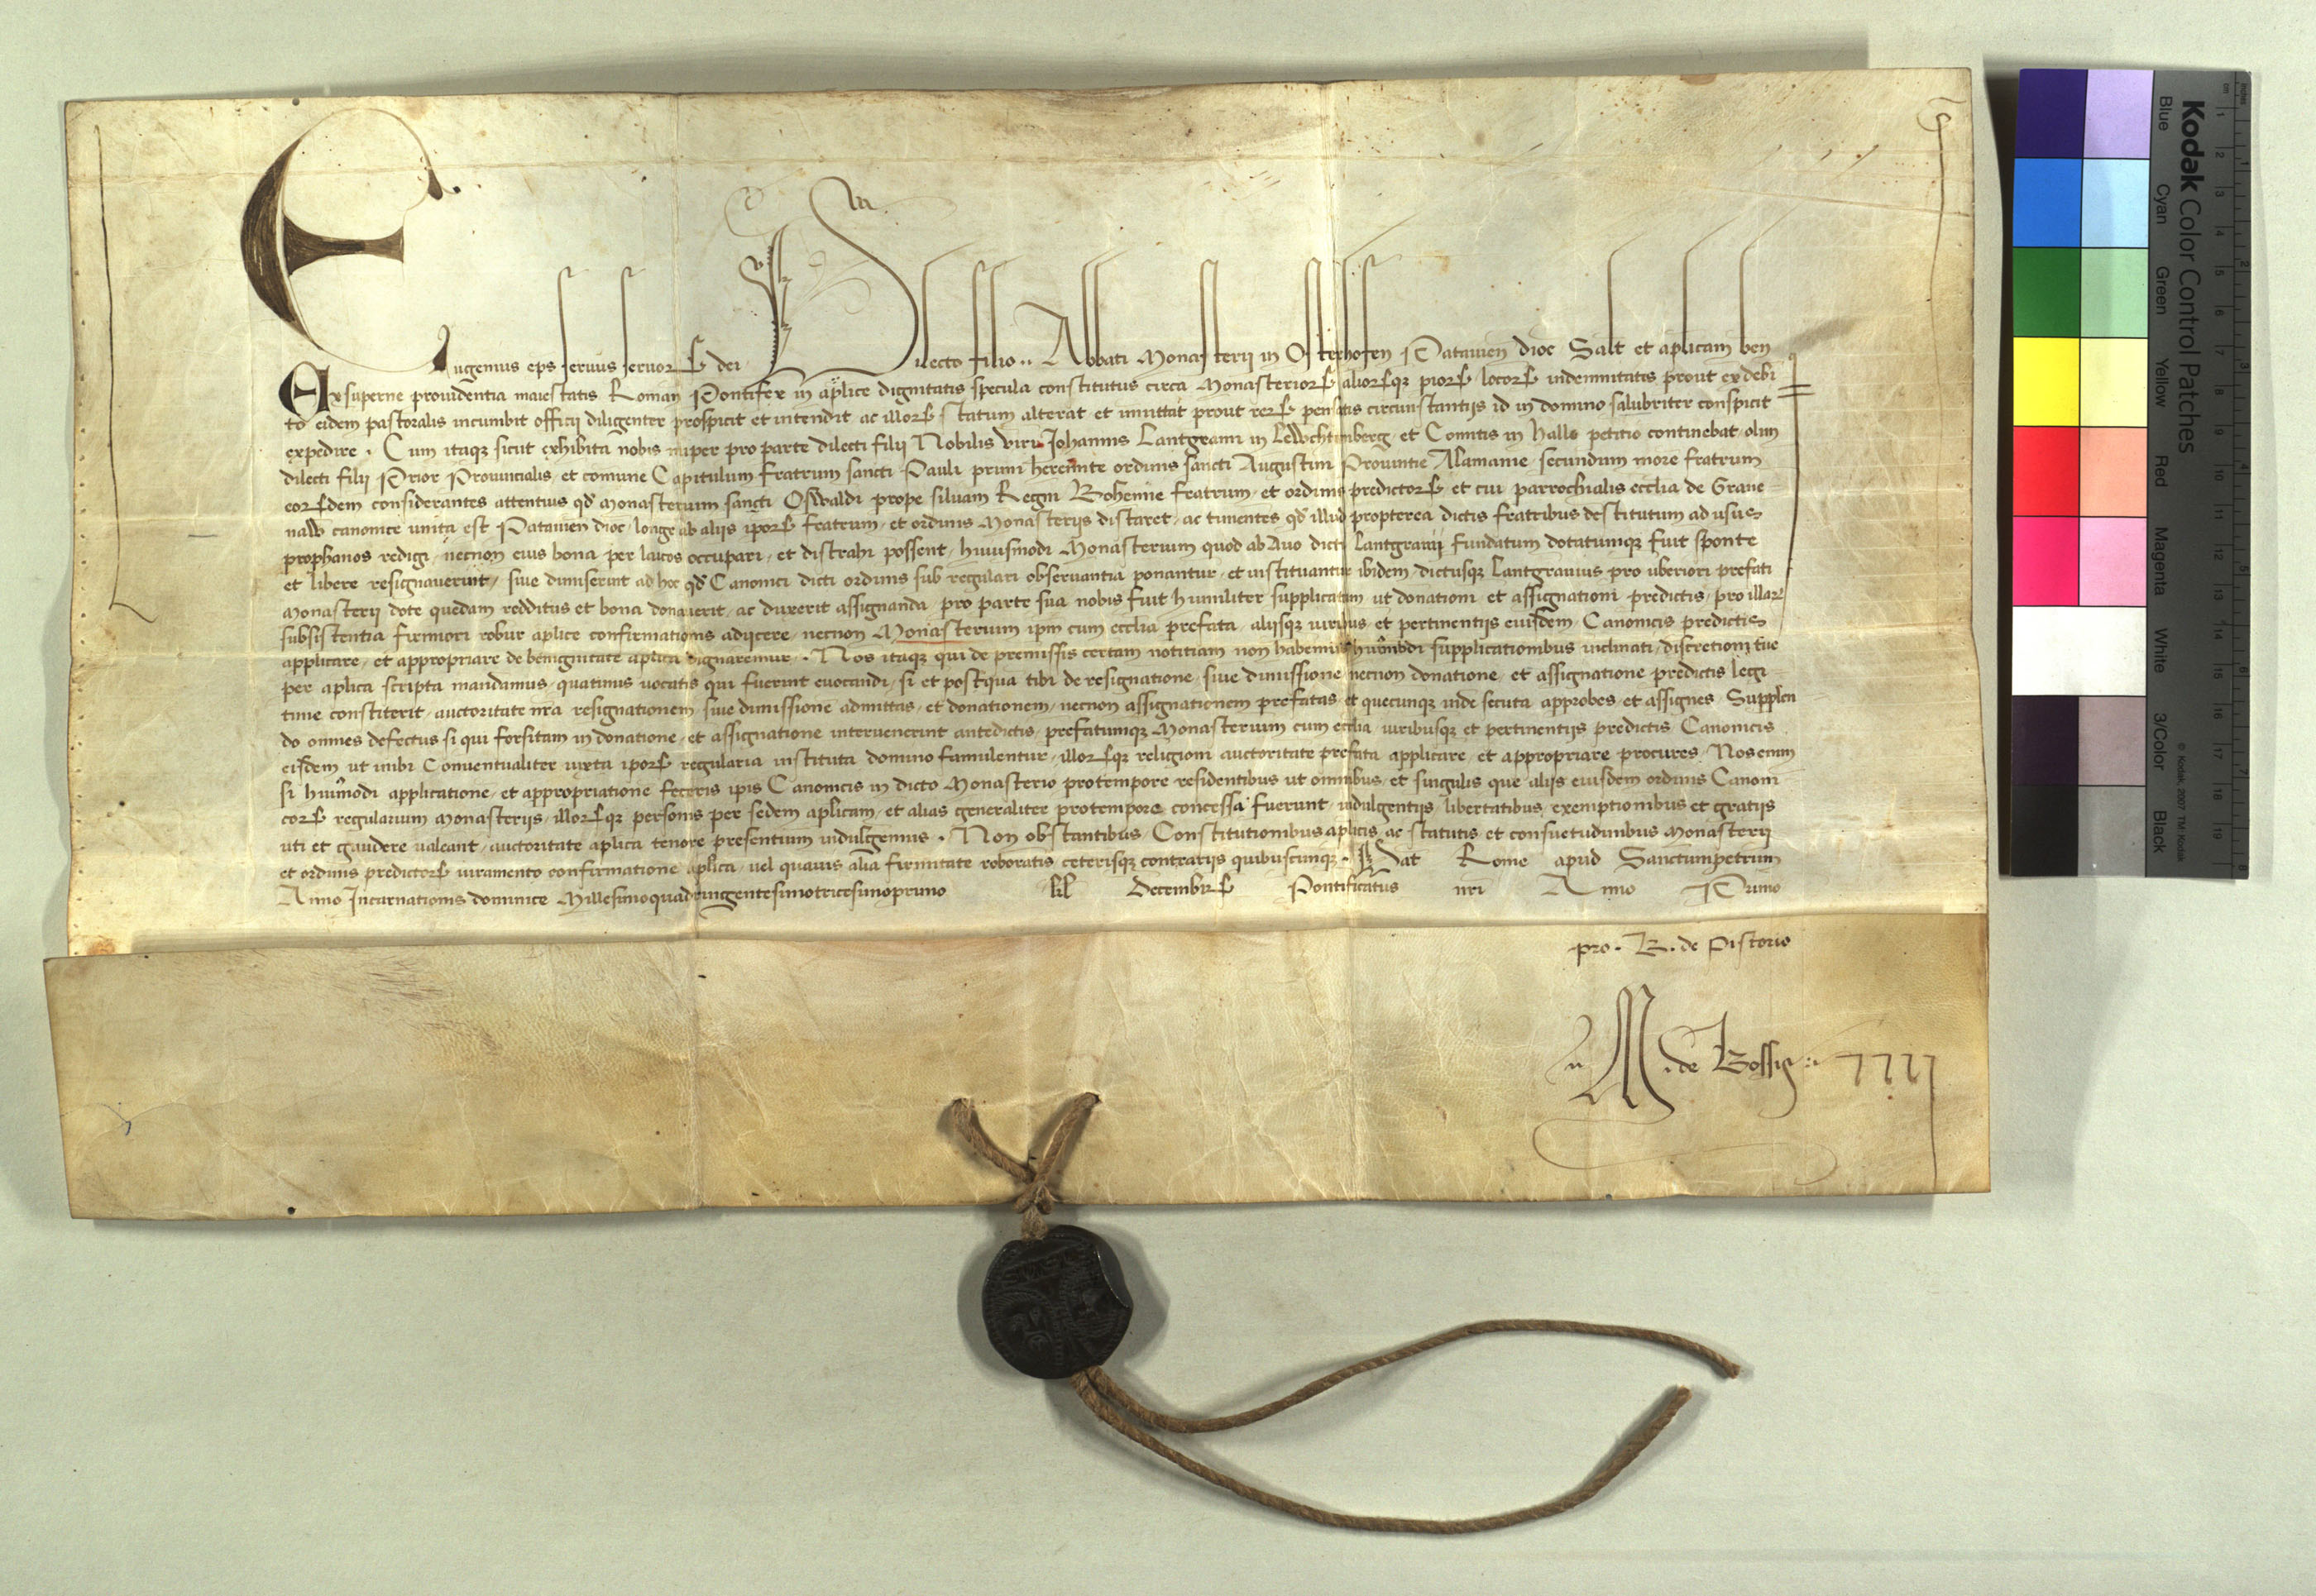 Eugenius eps servus servor dei Dilecto filio .. Abbati Monasterii in Osterhofen Patavien dioc Salt et aplicam ben
Ex superne providentia maiestatis Roman Pontifex in aplice dignitatis specula constitutus circa Monasterior aliorqz pior locor indemnitatis prout ex debi
to eidem pastoralis incumbit officii diligenter prospicit et intendit ac illor statum alterat et inmittat prout rer pensatis circunstantiis id in domino salubriter conspicit
expedire . Cum itaqz sicut exhibita nobis nuper pro parte dilecti filii Nobilis viri Johannis Lantgravii in Lewchtemberg et Comitis in Hallo petitio continebat olim
dilecti filii Prior Provincialis et comune Capitulum fratrum sancti Pauli primi heremite ordinis sancti Augustini Provintie Alamanie secundum more fratrum
eorsdem considerantes attentius qd monasterium sancti Oswaldi prope silvam Regni Bohemie fratrum et ordinis predictor et cui parrochialis ecclia de Grave=
naw canonice unita est Patavien dioc longe ab aliis ipor fratrum et ordinis Monasteriis distaret ac timentes qd illud propterea dictis fratribus destitutum ad usus
prophanos redigi necnon eius bona per laicos occupari et distrahi possent huiusmodi Monasterium quod ab Avo dicti Lantgravii fundatum dotatumqz fuit sponte
et libere resignaverint sive dimiserint ad hoc qd Canonici dicti ordinis sub regulari observantia ponantur et instituantur ibidem dictusqz Lantgravius pro uberiori prefati
Monasterii dote quedam redditus et bona donaverit ac duxerit assignanda pro parte sua nobis fuit humiliter supplicatum ut donationi et assignationi predictis pro illar
subsistentia firmiori robur aplice confirmationis adiicere necnon Monasterium ipm cum ecclia prefata aliisqz iuribus et pertinentiis eiusdem Canonicis predictis
applicare et appropriare de benignitate aplica dignaremur . Nos itaqz qui de premissis certam notitiam non habemus humodi supplicationibus inclinati discretioni tue
per aplica scripta mandamus quatinus vocatis qui fuerint evocandi si et postqua tibi de resignatione sive dimissione necnon donatione et assignatione predictis legi
time constiterit auctoritate nra resignationem sive dimissione admittas et donationem necnon assignationem prefatas et quecunqz inde secuta approbes et assignes Supplen
do omnes defectus si qui forsitam in donatione et assignatione intervenerint antedictis prefatumqz Monasterium cum ecclia iuribusqz et pertinentiis predictis Canonicis
eisdem ut inibi Conventualiter iuxta ipor regularia instituta domino famulentur illorqz religioni auctoritate prefata applicare et appropriare procures Nos enim
si humodi applicatione et appropriatione feceris ipis Canonicis in dicto Monasterio protempore residentibus ut omnibus et singulis que aliis eiusdem ordinis Canoni
cor regularium monasteriis illorqz personis per sedem aplicam et alias generaliter protempore concessa fuerunt indulgentiis libertatibus exemptionibus et gratiis
uti et gaudere valeant auctoritate aplica tenore presentium indulgemus . Non obstantibus Constitutionibus aplicis ac statutis et consuetudinibus Monasterii
et ordinis predictor iuramento confirmatione aplica vel quavis alia firmitate roboratis ceterisqz contrariis quibuscunqz . Dat Rome apud Sanctumpetrum
Anno Incarnationis dominice Millesimoquadringentesimotricesimoprimo kl Decembr Pontificatus nri Anno Primo
pro . B . de Pistorio
M . de Bossis